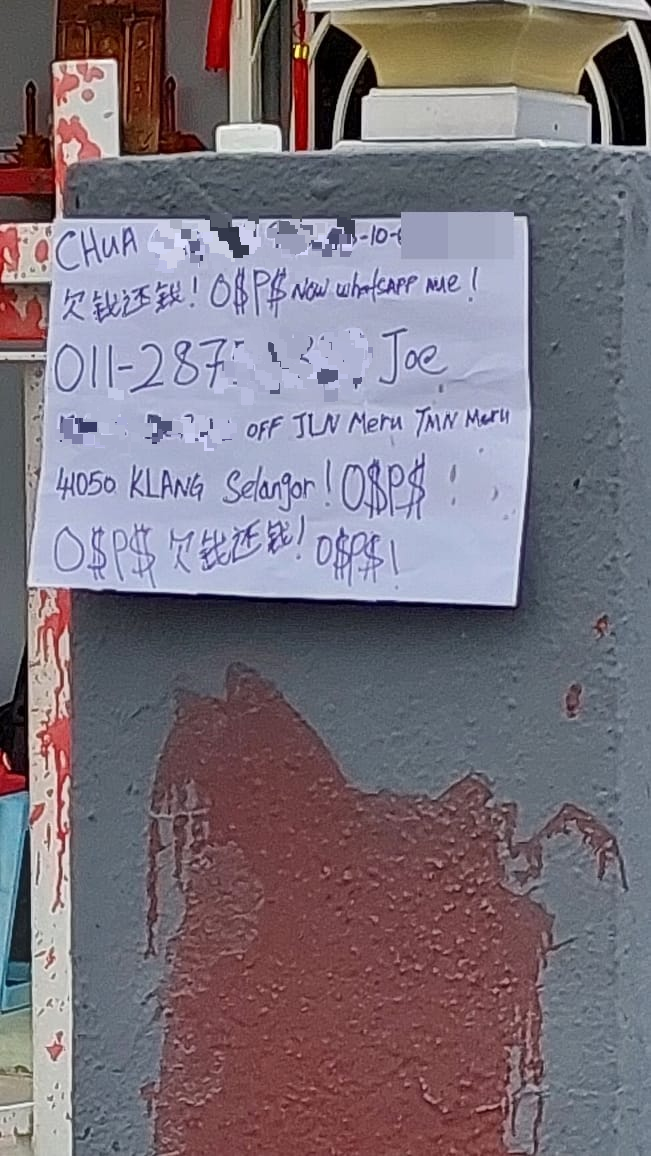 CHUA -10-
欠钱还钱! O$P$ NOW whatsAPP me!
011-287 Joe
OFF JLN Meru TMN Meru
41050 KLANG Selangor! O$P$ !
O$P$ 欠钱还钱! O$P$!